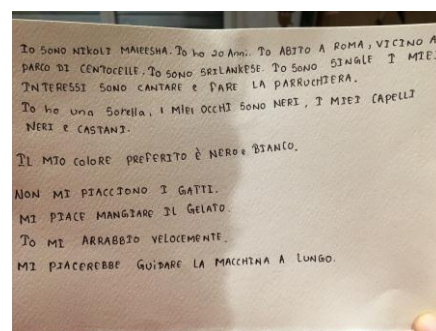 Io sono NIKOLI MALEESHA. Io ho 20 Anni. Io ABITO A ROMA, VICINO A
PARCO DI CENTOCELLE. Io SONO SRILANKESE. Io SONO SINGLE I MIEI
INTERESSI SONO CANTARE e FARE LA PARRUCHIERA.
Io ho una Sorella, i MIEI OCCHI SONO NERI, I MIEI CAPELLI
NERI e CASTANI.
IL MIO COLORE PREFERITO È NERO e BIANCO.
NON MI PIACCIONO I GATTI.
MI PIACE MANGIARE IL GELATO.
Io MI ARRABBIO VELOCEMENTE.
MI PIACEREBBE GUIDARE LA MACCHINA A LUNGO.